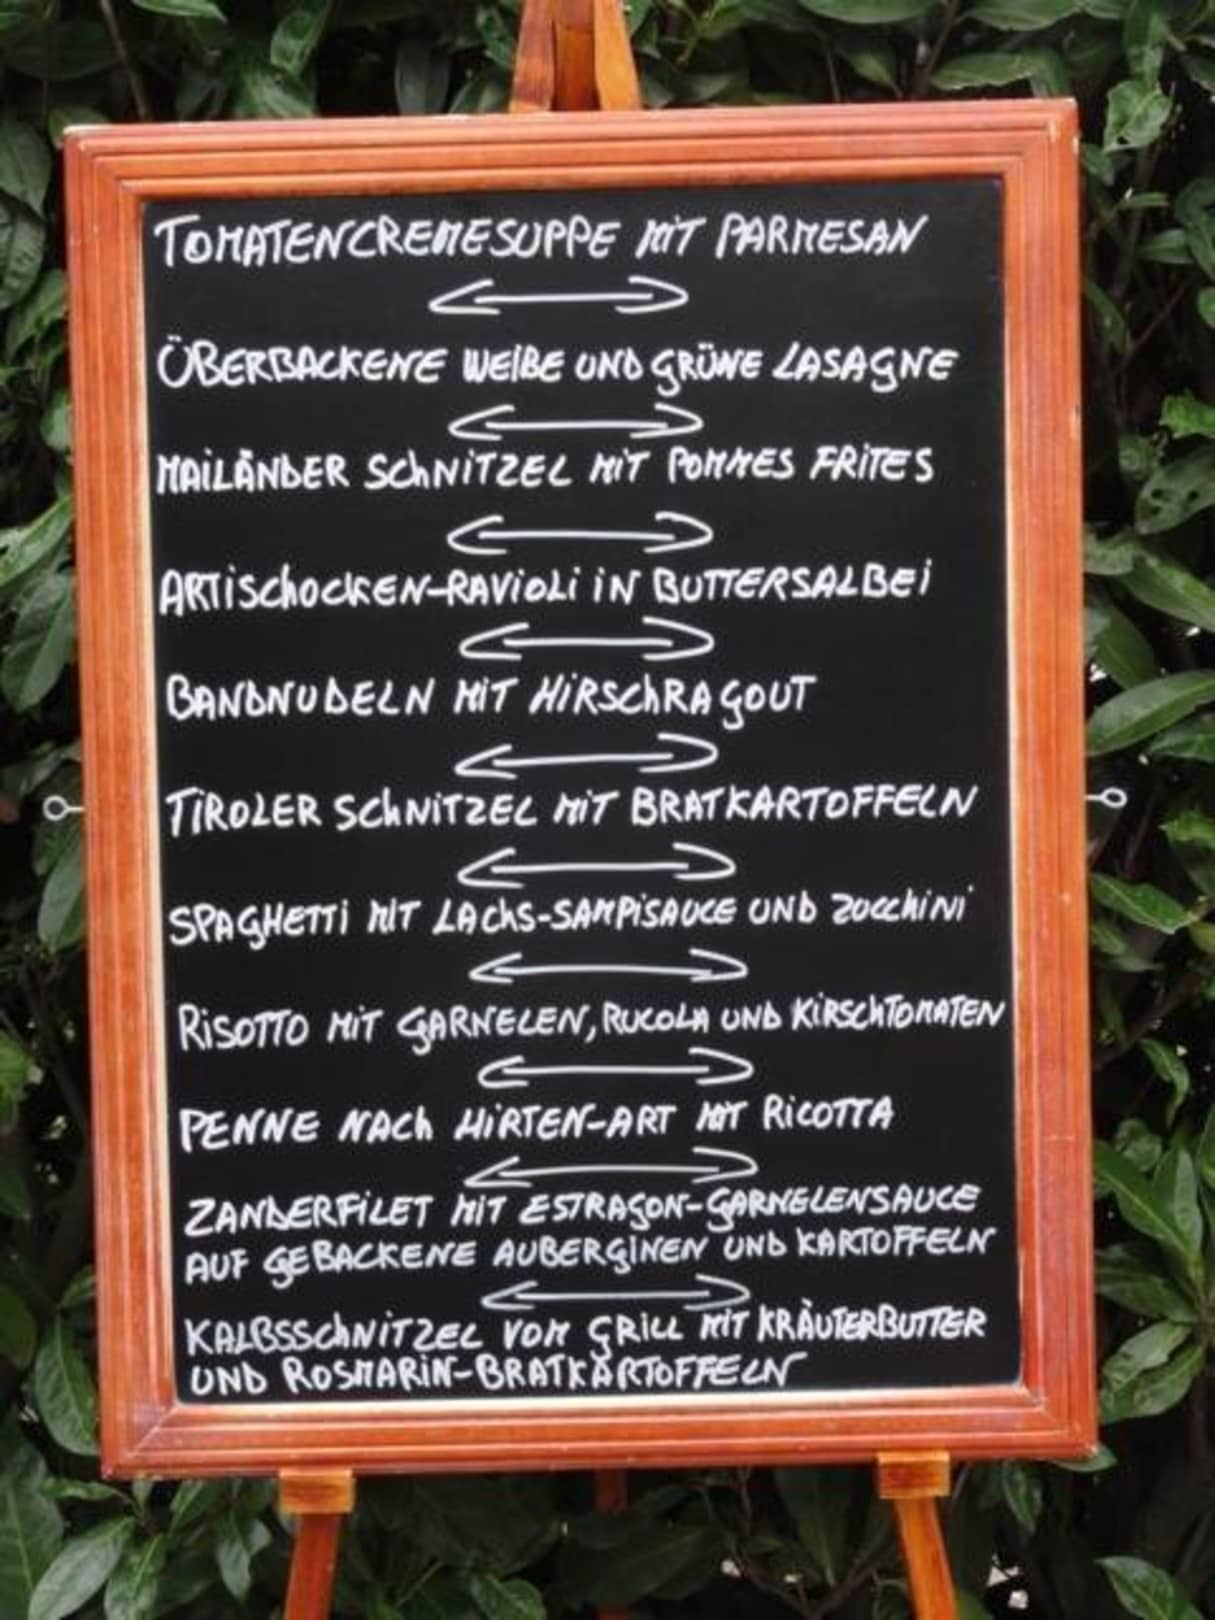 TOMATENCREMESUPPE MIT PARMESAN
ÜBERBACKENE WEIßE UND GRÜNE LASAGNE
MAILÄNDER SCHNITZEL MIT POMMES FRITES
ARTISCHOCKEN-RAVIOLI IN BUTTERSALBEI
BANDNUDELN MIT HIRSCHRAGOUT
TIROLER SCHNITZEL MIT BRATKARTOFFELN
SPAGHETTI MIT LACHS-SAMPISAUCE UND ZUCCHINI
RISOTTO MIT GARNELEN, RUCOLA UND KIRSCHTOMATEN
PENNE NACH HIRTEN-ART MIT RICOTTA
ZANDERFILET MIT ESTRAGON-GARNELENSAUCE
AUF GEBACKENE AUBERGINEN UND KARTOFFELN
KALBSSCHNITZEL VOM GRILL MIT KRÄUTERBUTTER
UND ROSMARIN-BRATKARTOFFELN